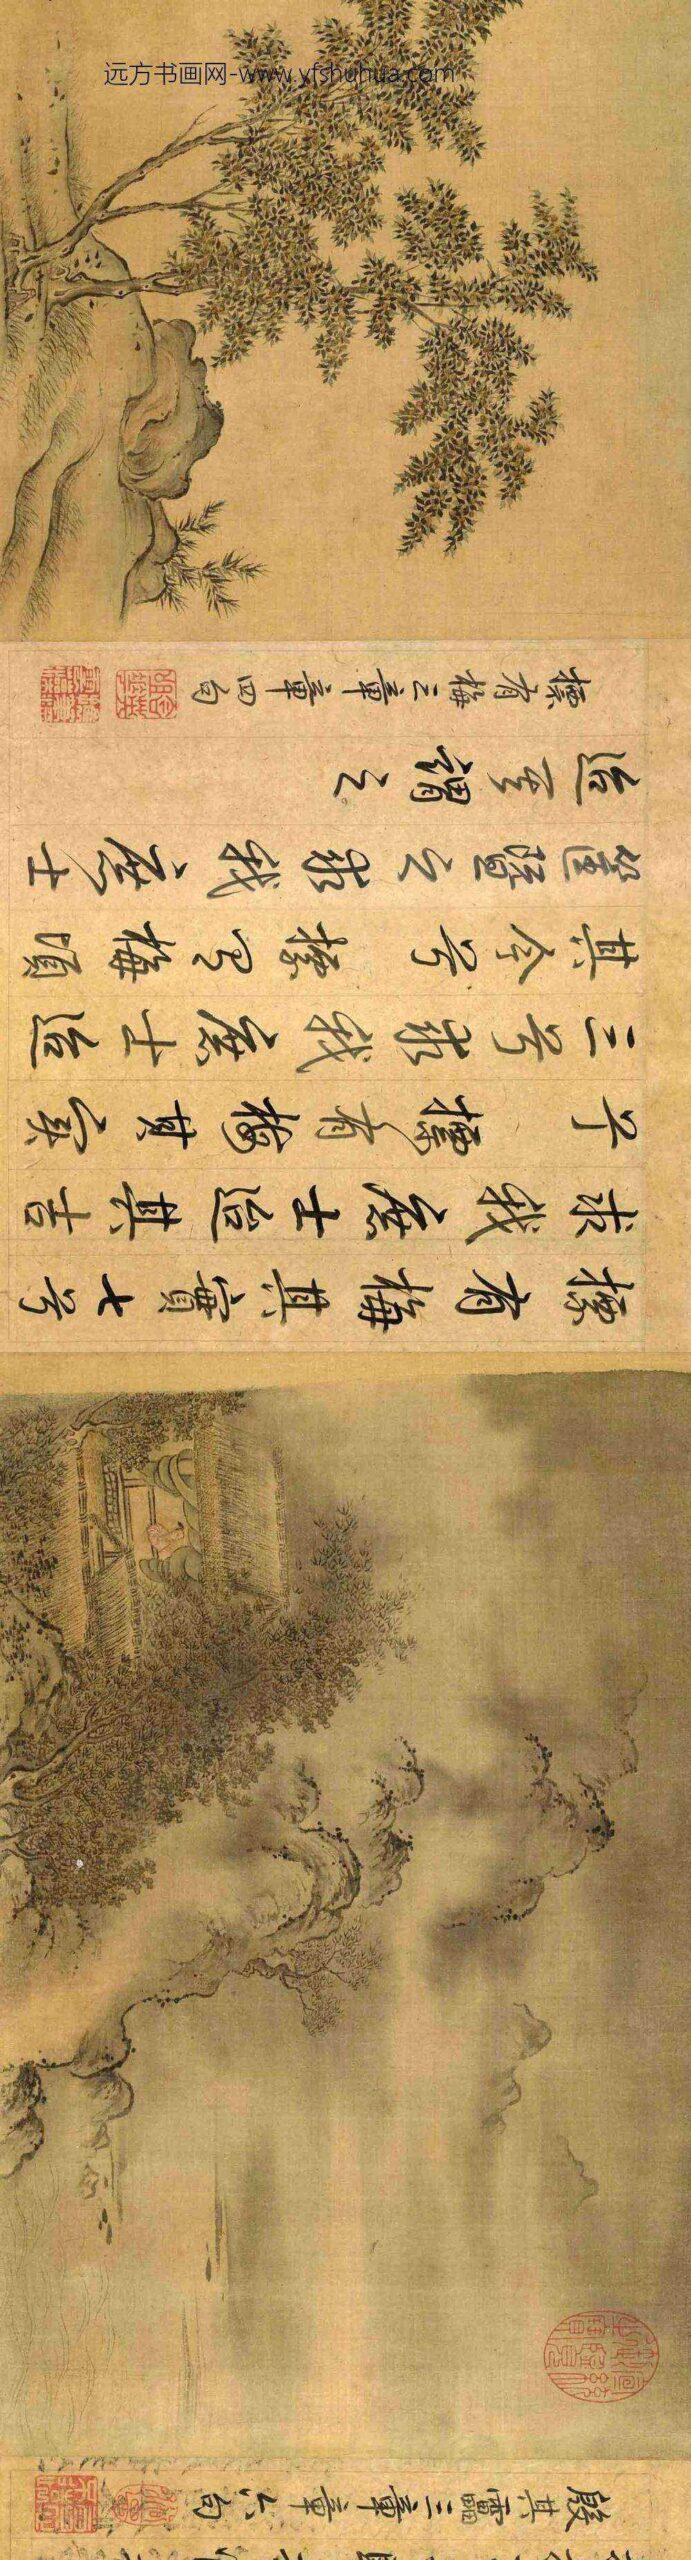 远方书画网-www.yfshuhua.com
殷其靁三章章六句
摽有梅其實七兮
求我庶士迨其吉
兮 摽有梅其實
三兮求我庶士迨
其今兮 摽有梅頃
筐塈之求我庶士
迨其謂之
摽有梅三章章四句